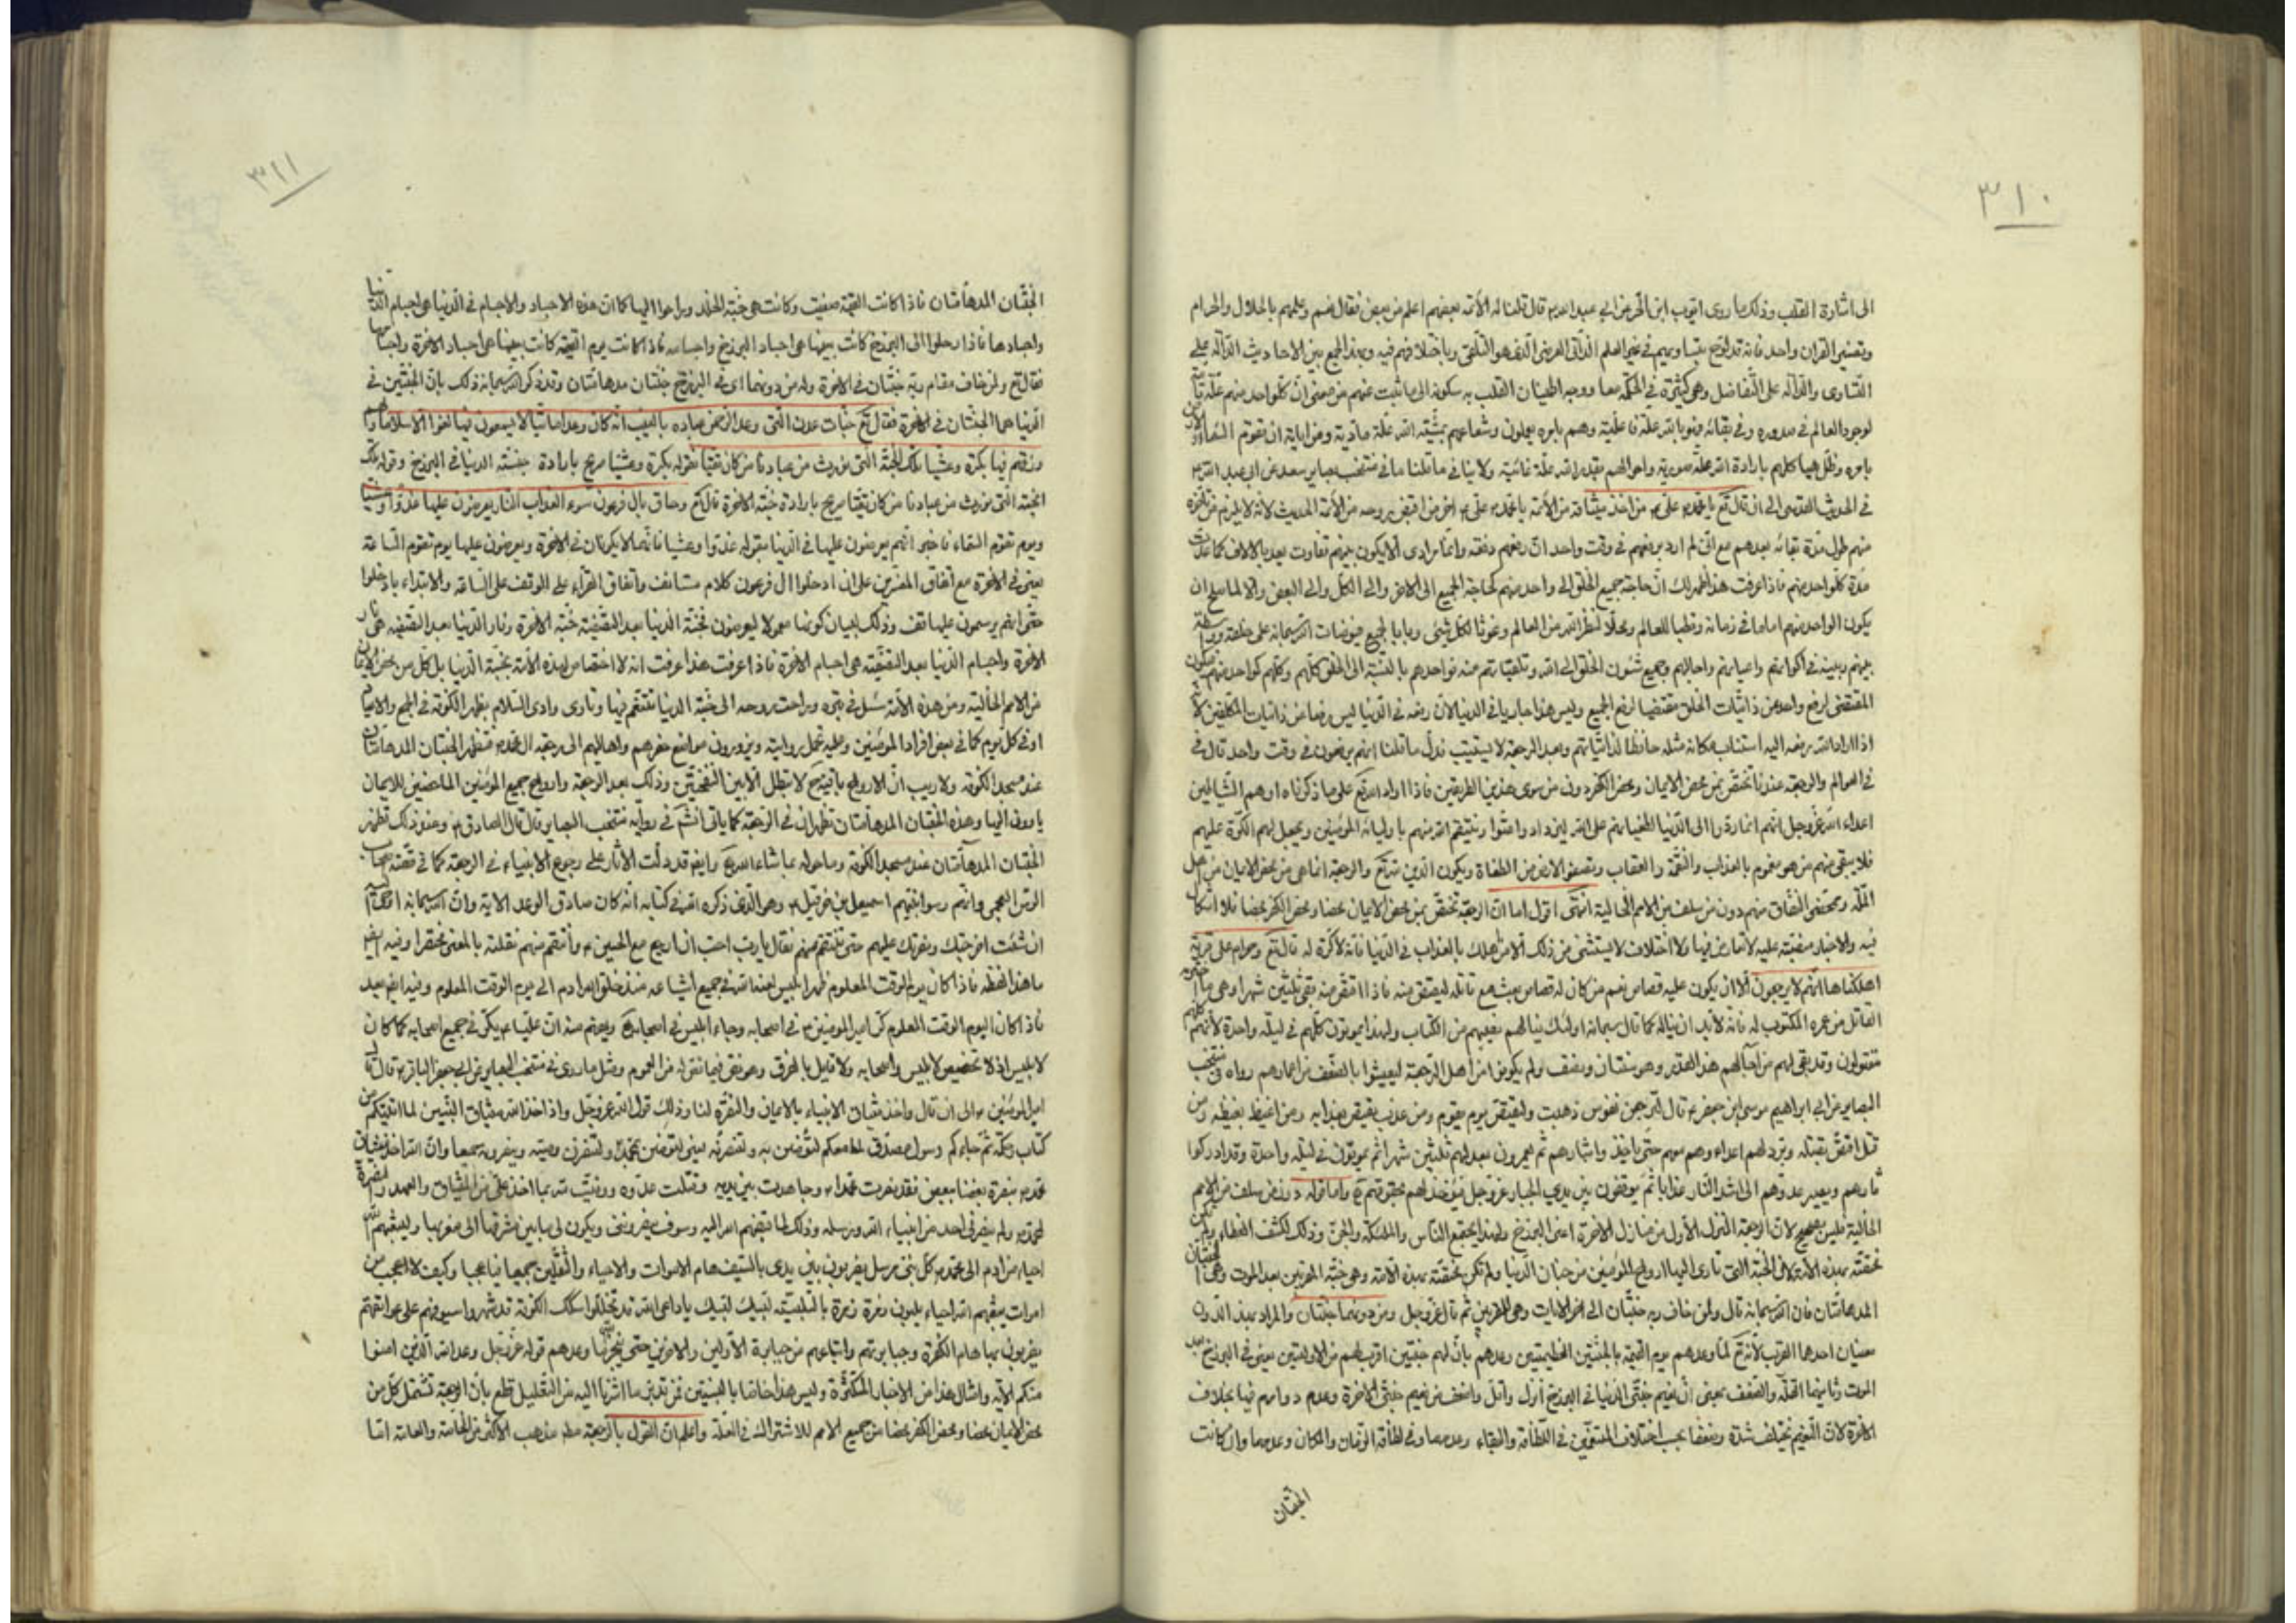 ٣١٠
الى اشارة القلب وذلك ما روى ايوب ابن الحر عن ابي عبد الله ع قال قلنا له الائمة بعضهم اعلم من بعض فقال نعم وعلمهم بالحلال والحرام
وتفسير القران واحد فانه قد لوّح بتساويهم في غير العلم الذاتي العرضي الذي هو التلقي وباختلافهم فيه وبهذا الجمع بين الاحاديث الدالة على
التساوى والدالة على التفاضل وهي كثيرة في الحكمة معا ووجه اطمينان القلب به سكونه الى ما ثبت عنهم من معنى ان كلواحد منهم علة
لوجود العالم في صدوره وفي بقائه فنوبالله علة فاعلية وهم بامره يعملون وشعاعهم بمشيته الله علة مادية ومن اياته ان تقوم السماء والارض
بامره وظل هياكلهم بارادة الله علة صورية واحوالهم بقدر الله علة غائية ولا ينافي ما قلنا ما في منتخب بصاير سعد عن ابي عبد الله ع
في الحديث القدسي الى ان قال تع يا محمد علي اول من اخذ ميثاقه من الائمة يا محمد علي اخر من اقبض روحه من الائمة الحديث لانه لا يلزم من تاخره
منهم طول مدة بقائه بعدهم مع اني لم ارد برفعهم في وقت واحد ان رفعهم دفعة وانما مرادى الا يكون بينهم تفاوت بعيد بالالاف كما
مدة كلواحد منهم فاذا عرفت هذا ظهر لك ان حاجة جميع الخلق الى واحد منهم كحاجة الجميع الى الاخر والى الكل والى البعض والا لما صلح ان
يكون الواحد منهم اماما في زمانه وقطبا للعالم ومحلا لنظر الله من العالم وغوثا لكل شيء وبابا لجميع فيوضات الله سبحانه على خلقه وواسطة
بينهم وبينه في اكوانهم واعيانهم واحوالهم وجميع شئون الخلق الى الله وتلقياتهم منه فواحدهم بالنسبة الى الخلق ككلهم وكلهم كواحد منهم فيكون
المقتضى لرفع واحد من ذاتيات الخلق مقتضيا لرفع الجميع وليس هذا جاريا في الدنيا لان رفعه في الدنيا ليس رفعا من ذاتيات المكلفين
اذا اراد الله رفعه اليه استناب مكانه مثله حافظا لذاتياتهم وبعد الرجعة لا يستنيب فدل ما قلنا انهم يرفعون في وقت واحد قال في
في العوالم والرجعة عندنا تختص بمن محض الايمان ومحض الكفر دون من سوى هذين الفريقين فاذا اراد الله تع على ما ذكرناه اوهم الشياطين
اعداء الله عز وجل انهم انما ردوا الى الدنيا لطغيانهم على الله ليزدادوا عتوا وينتقم الله منهم باوليائه المؤمنين ويجعل لهم الكرة عليهم
فلا يبقى منهم من هو مغموم بالعذاب والنقمة والعقاب وتصفو الارض من الطغاة ويكون الدين لله تع والرجعة انما هي من محض الايمان من اهل
الملة وممحضى النفاق منهم دون من سلف من الامم الخالية انتهى اقول اما ان الرجعة تختص بمن محض الايمان محضا ومحض الكفر محضا فلا اشكال
فيه والاخبار متفقة عليه لا تعارض فيها ولا اختلاف لا يستثنى من ذلك الا من اهلك بالعذاب في الدنيا فانه لا كرة له قال تع وحرام على قرية
اهلكناها انهم لا يرجعون الا ان يكون عليه قصاص نعم من كان له قصاص يبعث مع قاتله ليقتص منه فاذا اقتص منه بقي ثلثين شهرا وهي
القاتل من عمره المكتوب له فانه لا بد ان يناله كما قال سبحانه اولئك ينالهم نصيبهم من الكتاب ولهذا يموتون كلهم في ليلة واحدة لانهم كلهم
مقتولون وقد بقي لهم من اجالهم هذا القدر وهو سنتان ونصف ولم يكونوا من اهل الرجعة ليعيشوا بالضعف من اعمارهم رواه في منتخب
البصاير عن ابي ابراهيم موسى ابن جعفر ع قال لترجعن نفوس ذهبت وليقتص يوم يقوم ومن عذب يقتص بعذابه ومن اغيظ بغيظه ومن
قتل اقتص بقتله ويرد لهم اعداؤهم معهم حتى ياخذوا بثارهم ثم يعمرون بعدهم ثلثين شهرا ثم يموتون في ليلة واحدة وقد ادركوا
ثارهم ويصير عدوهم الى اشد النار عذابا ثم يوقفون بين يدي الجبار عز وجل فيؤخذ لهم بحقوقهم واما قوله دون من سلف من الامم
الخالية فليس بصحيح لان الرجعة المنزل الاول من منازل الاخرة اعنى البرزخ ولهذا يجتمع الناس والملئكة والجن وذلك لكشف الغطاء ولم تكن
مختصة بهذه الامة كما في الجنة التي تاوى اليها ارواح المؤمنين من جنان الدنيا ولم تكن مختصة بهذه الامة وهي جنة المقربين بعد الموت وهي الجنتان
المدهامتان فان الله سبحانه قال ولمن خاف مقام ربه جنتان الى اخر الايات وهي للمقربين ثم قال عز وجل ومن دونهما جنتان والمراد بهذا الدون
معنيان احدهما القرب لانه تع لما وعدهم يوم القيمة بالجنتين العظيمتين وعدهم بان لهم جنتين اقرب لهم من الاوليتين يعني في البرزخ بعد
الموت وثانيهما القلة والضعف بمعنى ان نعيم جنتي الدنيا في البرزخ انزل واقل واضعف من نعيم جنتي الاخرة وعدم دوامهم فيها بخلاف
الاخرة لان النعيم يختلف شدة وضعفا بحسب اختلاف المتنعمين في اللطافة والبقاء وعدمهما وفي لطافة الزمان والمكان وعدمهما وان كانت
الجنتان
٣١١
الجنتان المدهامتان فاذا كانت القيمة صفيت وكانت هي جنة الخلد وراحوا اليها كما ان هذه الاجساد والاجسام في الدنيا هي اجسام الدنيا
واجسادها فاذا رحلوا الى البرزخ كانت بعينها هي اجساد البرزخ واجسامه فاذا كانت يوم القيمة كانت بعينها هي اجساد الاخرة واجسامها
فقال تع ولمن خاف مقام ربه جنتان في الاخرة وله من دونهما اى في البرزخ جنتان مدهامتان وقد ذكر الله سبحانه ذلك بان الجنتين في
الدنيا هما الجنتان في الاخرة فقال تع جنات عدن التي وعد الرحمن عباده بالغيب انه كان وعده ماتيا لا يسمعون فيها لغوا الا سلاما ولهم
رزقهم فيها بكرة وعشيا تلك الجنة التي نورث من عبادنا من كان تقيا فقوله بكرة وعشيا صريح بارادة جنة الدنيا في البرزخ وقوله تلك
الجنة التي نورث من عبادنا من كان تقيا صريح بارادة جنة الاخرة قال تع وحاق بال فرعون سوء العذاب النار يعرضون عليها غدوا وعشيا
ويوم تقوم الساعة فاخبر انهم يعرضون عليها في الدنيا بقوله غدوا وعشيا فانهما لا يكونان في الاخرة ويعرضون عليها يوم تقوم الساعة
يعني في الاخرة مع اتفاق المفسرين على ان ادخلوا ال فرعون كلام مستانف واتفاق القراء على الوقف على الساعة والابتداء بادخلوا
حتى انهم يرسمون عليها قف وذلك لبيان كونها معمولا ليعرضون فجنة الدنيا بعد التصفية جنة الاخرة ونار الدنيا بعد التصفية هي نار
الاخرة واجسام الدنيا بعد التصفية هي اجسام الاخرة فاذا عرفت هذا عرفت انه لا اختصاص لهذه الامة بجنة الدنيا بل كل من محض الايمان
من الامم الخالية ومن هذه الامة يسئل في قبره وراحت روحه الى جنة الدنيا تتنعم فيها وتاوى وادى السلام بظهر الكوفة في الجمع والاعياد
او في كل يوم كما في بعض افراد المؤمنين وعليه تحمل روايته ويزورون مواضع حفرهم واهاليهم الى رجعة ال محمد فتظهر الجنتان المدهامتان
عند مسجد الكوفة ولا ريب ان الارواح باقية لا تبطل الا بين النفختين وذلك بعد الرجعة وارواح جميع المؤمنين الماحضين للايمان
ياوون اليها وهذه الجنتان المدهامتان تظهران في الرجعة كما ياتى انشم في رواية منتخب البصاير قال قال الصادق ع وعند ذلك تظهر
الجنتان المدهامتان عند مسجد الكوفة وما حوله بما شاء الله تع وايضا قد دلت الاثار على رجوع الانبياء في الرجعة كما في قصة اصحاب
الرس العجمي وانهم رسوا نبيهم اسمعيل بن حزقيل وهو الذي ذكره الله في كتابه انه كان صادق الوعد الاية وان الله سبحانه اوحى اليه
ان شئت اخرجتك ونصرتك عليهم حتى تنتقم منهم فقال يا رب احب ان ارجع مع الحسين ع وانتقم منهم نقلته بالمعنى مختصرا وفيه ايضا
ما هذا لفظه فاذا كان يوم الوقت المعلوم ظهر ابليس لعنه الله في جميع اشياعه منذ خلق الله ادم الى يوم الوقت المعلوم وفيه ايضا بعد
فاذا كان اليوم الوقت المعلوم كر امير المؤمنين ع في اصحابه وجاء ابليس في اصحابه ويفهم منه ان عليا ع يكر في جميع اصحابه كما كان
لابليس اذ لا تخصيص لابليس واصحابه ولا قايل بالفرق وهو نص فيما نقوله من العموم ومثل ما روى في منتخب البصاير عن ابي جعفر الباقر ع قال قال
امير المؤمنين ع الى ان قال واخذ ميثاق الانبياء بالايمان والنصرة لنا وذلك قول الله عز وجل واذ اخذ الله ميثاق النبيين لما اتيتكم من
كتاب وحكمة ثم جاءكم رسول مصدق لما معكم لتؤمنن به ولتنصرنه يعني لتؤمنن بمحمد ولتنصرن وصيه وينصرونه جميعا وان الله اخذ ميثاقى
محمد بنصرة بعضنا ببعض فقد نصرت محمدا وجاهدت بين يديه وقتلت عدوه ووفيت لله بما اخذ علي من الميثاق والعهد والنصرة
لمحمد ولم ينصرني احد من انبياء الله ورسله وذلك لما قبضهم الله اليه وسوف ينصرونني ويكون لي ما بين مشرقها الى مغربها وليبعثهم الله
احياء من ادم الى محمد كل نبي مرسل يضربون بين يدى بالسيف هام الاموات والاحياء والثقلين جميعا فيا عجبا وكيف لا اعجب من
اموات يبعثهم الله احياء يلبون زمرة زمرة بالتلبية لبيك لبيك يا داعى الله قد تخللوا سكك الكوفة قد شهروا سيوفهم على عواتقهم
يضربون بها هام الكفرة وجبابرتهم واتباعهم من جبابرة الاولين والاخرين حتى ينجز الله ما وعدهم قوله عز وجل وعد الله الذين امنوا
منكم الاية وامثال هذا من الاخبار المتكثرة وليس هذا خاصا بالنبيين فمن تدبر ما اشرنا اليه من التعليل قطع بان الرجعة تشتمل كل من
محض الايمان محضا ومحض الكفر محضا من جميع الامم للاشتراك في العلة واعلم ان القول بالرجعة مذهب الاكثر من الخاصة والعامة اما